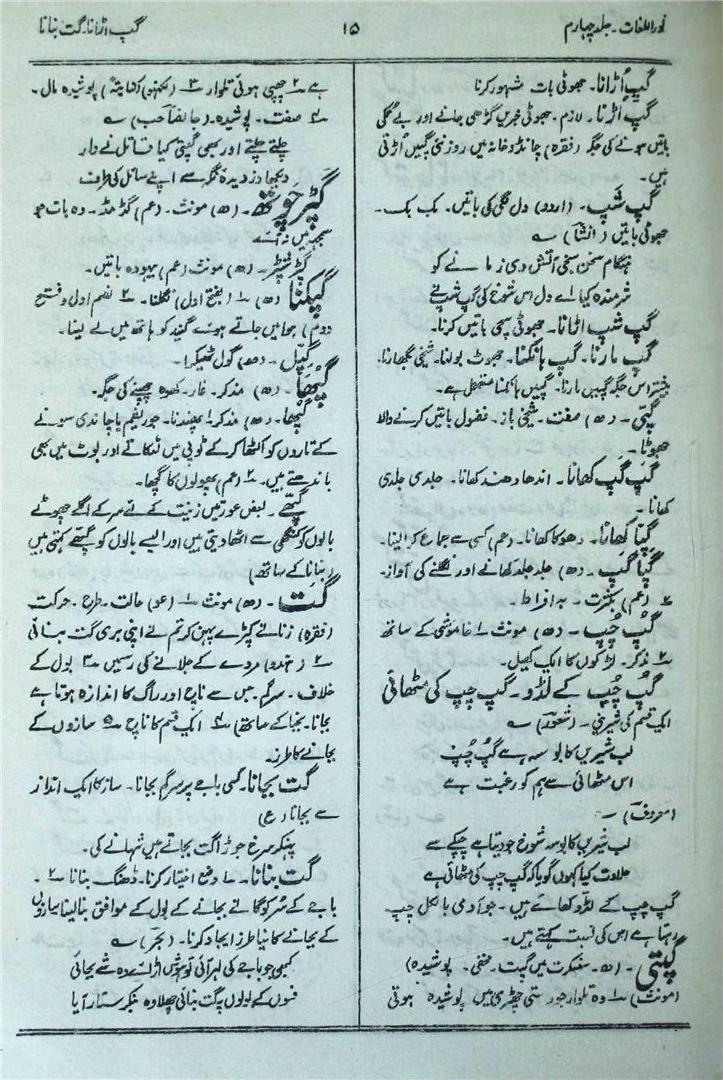 نور اللغات۔ جلد چہارم
۱۵
گپ اڑانا۔ گت بنانا
گپ اُڑانا۔ جھوٹی بات مشہور کرنا
گپ اڑنا۔ لازم۔ جھوٹی خبریں گڑھی جانے اور بے تُکی
باتیں ہونے کی جگہ (فقرہ) چانڈو خانہ میں روز نئی گپیں اُڑتی
ہیں۔
گپ شَپ۔ (اردو) دل لگی کی باتیں۔ بک بک۔
جھوٹی باتیں (انشاؔ) ؎
ہنگامِ سخن سنجی آتش دی زمانے کو
شرمندہ کیا اے دل اس شوخ کی گپ شپ نے
گپ شپ اڑانا۔ جھوٹی سچی باتیں کرنا۔
گپ مارنا۔ گپ ہانکنا۔ جھوٹ بولنا۔ شیخی بگھارنا۔
بیشتر اس جگہ گپیں مارنا۔ گپیں ہانکنا مستعمل ہے۔
گپّی۔ (ھ) صفت۔ شیخی باز۔ فضول باتیں کرنے والا
جھوٹا۔
گپ گپ کھانا۔ اندھا دھند کھانا۔ جلدی جلدی
کھانا۔
گپّا کھانا۔ دھوکا کھانا۔ (عم) کسی سے جماع کرالینا۔
گپا گپ۔ (ھ) جلد جلد کھانے اور نگلنے کی آواز۔
۲ (عم) بکثرت۔ بہ افراط۔
گپ چپ۔ (ھ) مونث ۱ خاموشی کے ساتھ
۲ مذکر۔ لڑکوں کا ایک کھیل۔
گپ چپ کے لڈو۔ گپ چپ کی مٹھائی
ایک قسم کی شیرینی۔ (شعورؔ) ؎
لب شیریں کا بوسہ ہے گپ چپ
اس مٹھائی سے ہم کو رغبت ہے
(معروفؔ) ؎
لب شیریں کا بوسہ شوخ جو دیتا ہے چپکے سے
حلاوت کیا کہوں گویا کہ گپ چپ کی مٹھائی ہے
گپ چپ کے لڈو کھائے ہیں۔ جو آدمی بالکل چپ
رہتا ہے اس کی نسبت کہتے ہیں۔
گپتی۔ (ھ۔ سنسکرت میں گپت۔ مخفی۔ پوشیدہ)
(مونث) ۱ وہ تلوار جو دستی چھڑی میں پوشیدہ ہوتی
ہے ۲ چھپی ہوئی تلوار ۳ (لکھنؤ) (کنایتہً) پوشیدہ مال۔
۴ صفت۔ پوشیدہ۔ ؎
چلتے چلتے اور بھی گپتی کیا قاتل نے وار
دیکھا دزدیدہ نگہ سے اپنے سائل کی طرف
گپڑ چوتھ۔ (ھ) مونث۔ (عم) گڈمڈ۔ وہ بات جو
سمجھ میں نہ آئے۔
(ھ) مونث (عم) بیہودہ باتیں۔
گپکنا (ھ) ۱ (بفتح اول) نگلنا۔ ۲ (بضم اول و فتح
دوم) ہوا میں جاتے ہوئے گیند کو ہاتھ میں لے لینا۔
گپل۔ (ھ) گول ٹھیکرا۔
گپھا۔ (ھ) مذکر۔ غار۔ کھوہ چھپنے کی جگہ۔
گپھا۔ (ھ) مذکر ۱ پھندنا۔ جو ریشم یا چاندی سونے
کے تاروں کو اکٹھا کر کے ٹوپی میں لٹکاتے اور بوٹ میں بھی
باندھتے ہیں۔ ۲ (عم) پھولوں کا گچھا۔
گپھے۔ بعض عورتیں زینت کے لیے سر کے اگلے چھوٹے
بالوں کو کنگھی سے اٹھا دیتی ہیں اور ایسے بالوں کو گپھے کہتی ہیں
(بنانا کے ساتھ)
گت۔ (ھ) مونث ۱ (عو) حالت۔ طرح۔ حرکت
(فقرہ) زنانے کپڑے پہن کر تم نے اپنی بری گت بنائی
۲ (ہندو) مردے کے جلانے کی رسمیں ۳ بول کے
خلاف۔ سرگم۔ جس سے ناچ اور راگ کا اندازہ ہوتا ہے
(بجانا۔ بجنا کے ساتھ) ۴ ایک قسم کا ناچ ۵ سازوں کے
بجانے کا طرز۔
گت بجانا۔ کسی باجے پر سرگم بجانا۔ ساز کا ایک انداز
سے بجانا (ع)
گت بجاتے ہیں شہانے کی۔
گت بنانا۔ ۱ وضع اختیار کرنا۔ ڈھنگ بنانا ۲
باجے کے سُر کو گانے بجانے کے بول کے موافق بنا لینا۔ سازوں
کے بجانے کا نیا طرز ایجاد کرنا۔ (بحرؔ) ؎
کبھی جو باجے کی لہر آئی تو ہوش اڑا کے وہ شے بجائی
گت بنائی چھلاوہ بنکر ستار آیا